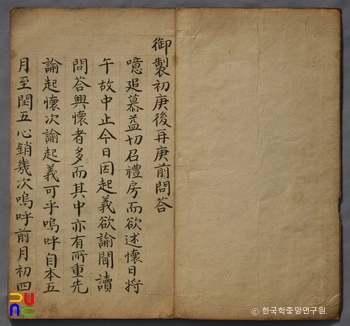 御製初庚後再庚前問答
噫追慕益切召禮房而欲述懷日将
午故中止今日因起義欲諭聞讀
問答興懷者多而其中亦有所重先
諭起懷次諭起義可乎嗚呼自本五
月至閏五心銷幾次嗚呼前月初四
한국학중앙연구원